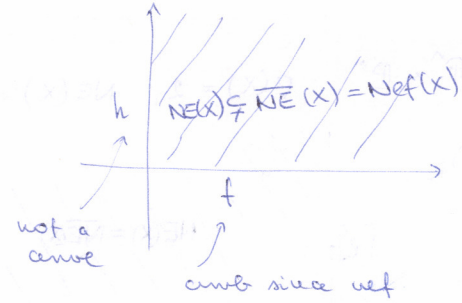 h
NE(X) ⊊ \overline{NE}(X) = Nef(X)
f
not a
curve
curve since nef